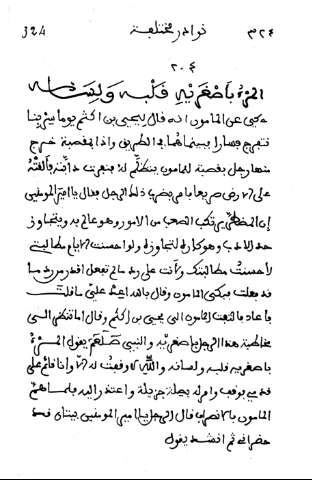 ٣٢٤ نوادر مختلفة 324
٢٠٤
المرء بأصغريه قلبه ولسانه
حكي عن المامون انه قال ليحيى بن اكثم يوما سر بنا
نتفرج فسارا فبينما هما في الطريق واذا بمقصبة خرج
منها رجل بقصبة للمامون يتظلم له فنفرت دابته فالقته
على الارض صريعا فامر بضرب ذلك الرجل فقال يا امير المومنين
ان المضطر يرتكب الصعب من الامور وهو عالم به ويتجاوز
حد الادب وهو كاره لتجاوزه ولو احسنت الايام مطالبتي
لاحسنت مطالبتك ولانت على رد ما لم تفعل اقدر من رد ما
قد فعلت فبكى المامون وقال بالله اعد علي ما قلت
فاعاد فالتفت المامون الى يحيى بن اكثم وقال اما تنظر الى
مخاطبة هذا الرجل باصغريه والنبي صلعم يقول المرء
باصغريه قلبه ولسانه والله لا وقفت له الا وانا قائم على
قدمي فوقف وامر له بصلة جزيلة واعتذر اليه فلما هم
المامون بالانصراف قال الرجل يا امير المومنين بيتان قد
حضراني ثم انشد يقول